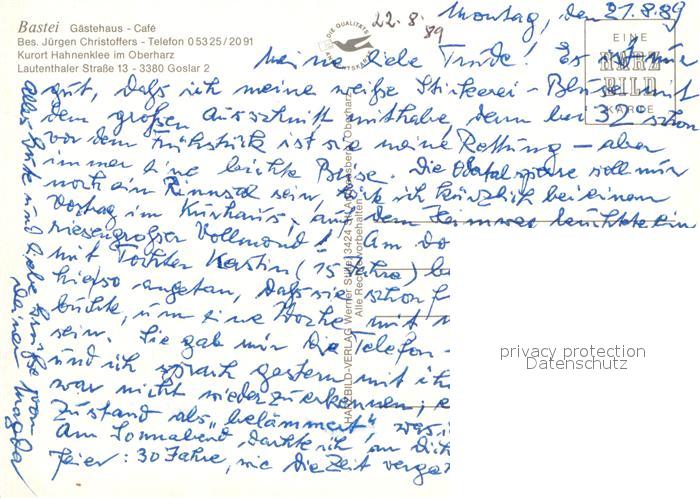 Bastei Gästehaus - Café
Bes. Jürgen Christoffers - Telefon 0 53 25 / 20 91
Kurort Hahnenklee im Oberharz
Lautenthaler Straße 13 - 3380 Goslar 2
DIE QUALITÄTS
22.8.89
EINE
HARZ
BILD
KARTE
Montag, den 21.8.89
Meine liebe Trude! Es ist nur
gut, daß ich meine weiße Stickerei-Bluse mit
dem großen Ausschnitt mithabe, denn bei 32° schon
vor dem Frühstück ist sie meine Rettung – aber
immer eine leichte Brise. Die Odertalsperre soll nur
noch ein Rinnsal sein, ich kürzlich bei einem
Vortrag im Kurhaus, auf dem Heimweg leuchtete ein
riesengroßer Vollmond! Am do
mit Tochter Kerstin (15 Jahre) b
hierso angetan, daß sie schon f
buchte, um eine Woche mit
sein. Sie gab mir die Telefon-
und ich sprach gestern mit ih
war nicht wiederzuerkennen;
Zustand als "belämmert" was
Am Sonnabend dachte ich an Dich
Feier: 30 Jahre, wie die Zeit verge
Alles Gute und liebe Grüße von
Deiner Magda
HARZBILD-VERLAG Werner Stille 3424 St. Andreasberg / Oberharz
Alle Rechte vorbehalten
privacy protection
Datenschutz